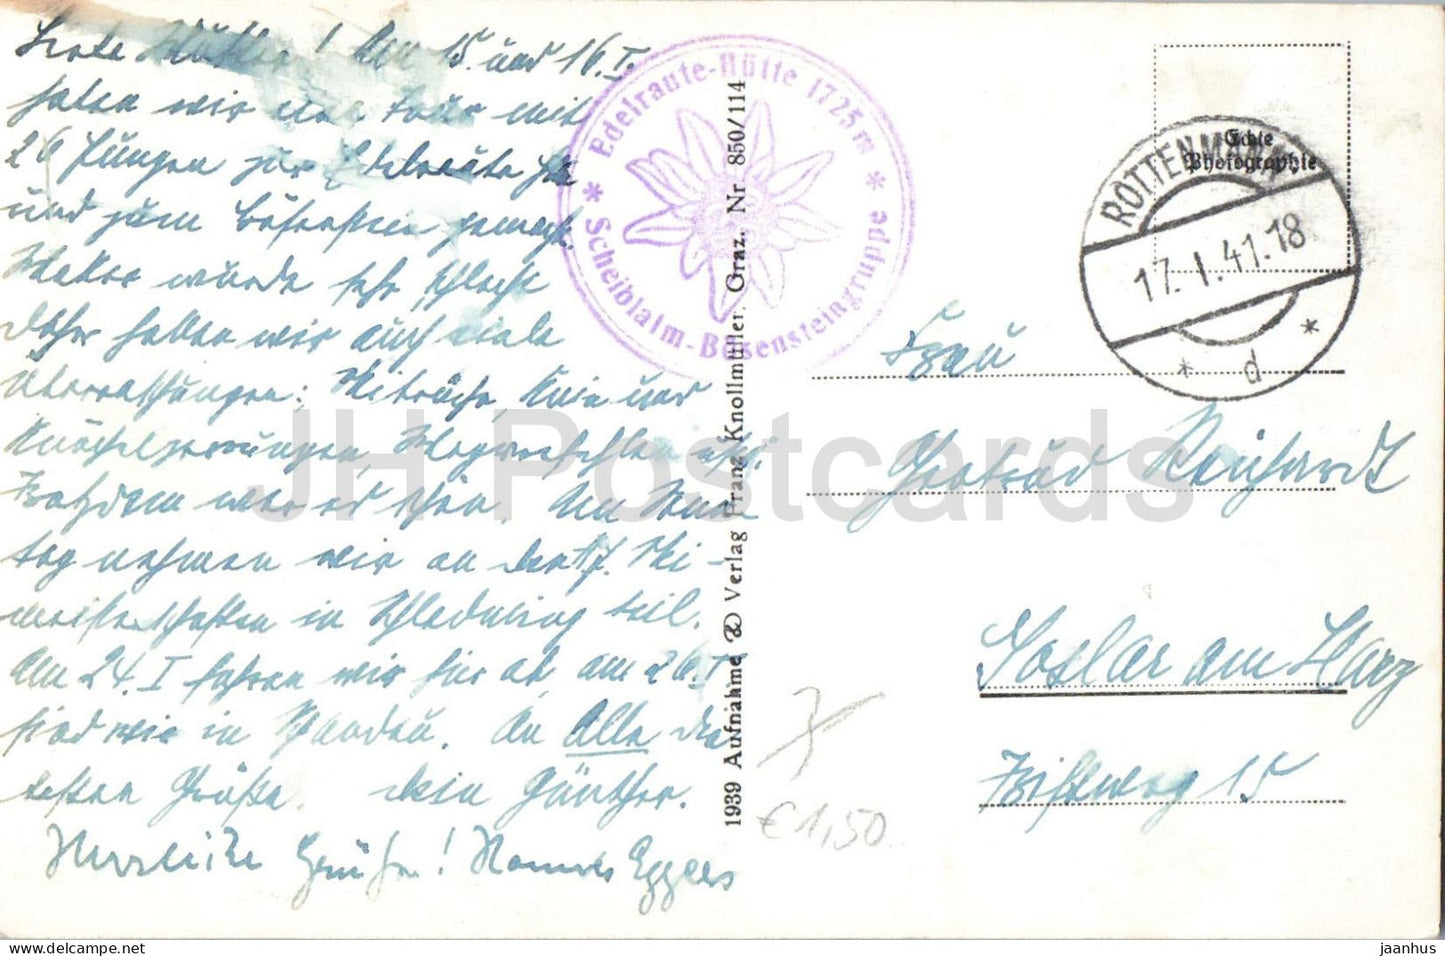 Liebe Mutter! Am 15. und 16. I.
haben wir eine Tour mit
26 Jungen zur Edelraute Hü
und zum Bösenstein gemacht.
Wetter wurde sehr schlecht
daher haben wir auch viele
Überraschungen: Skibrüche, Knie und
Knöchelzerrungen,
Trotzdem war es schön. Am Sonn-
tag nehmen wir an den H.J. Ski-
meisterschaften in Schladming teil.
Am 24. I fahren wir hier ab, am 26. I
sind wir in Spandau. An Alle die
besten Grüße. Dein Günther.
Herzliche Grüße! Hannes Eggers
Edelraute-Hütte 1725 m
* Scheiblalm-Bösensteingruppe *
1939 Aufnahme & Verlag Franz Knollmüller, Graz. Nr 850/114
Echte
Photographie
ROTTENMANN
17. I. 41. 18
* d *
Frau
Gertrud Reichardt
Goslar am Harz
15
€ 1,50
JH Postcards
delcampe.net
jaanhus